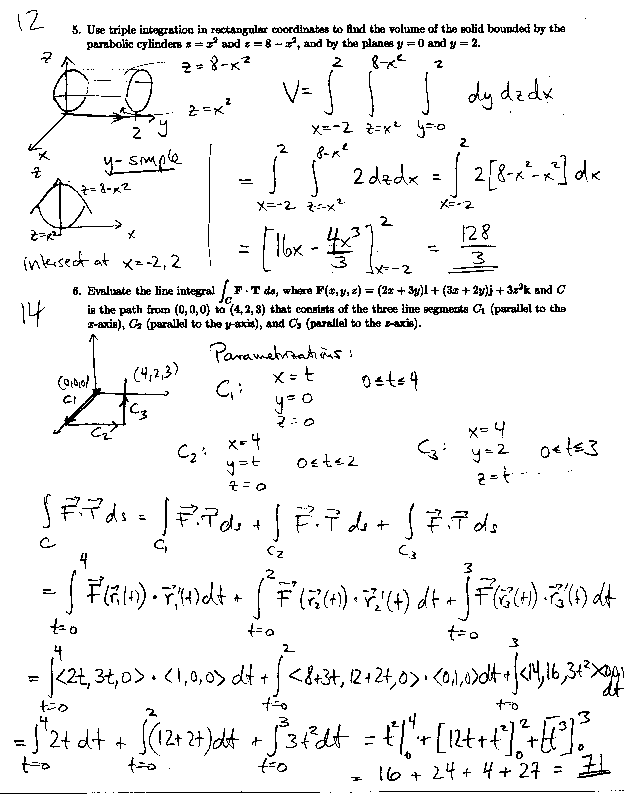 12
5. Use triple integration in rectangular coordinates to find the volume of the solid bounded by the
parabolic cylinders z = x² and z = 8 − x², and by the planes y = 0 and y = 2.
z
z = 8-x²
z = x²
2 y
x
y-simple
V = ∫_{x=-2}^{2} ∫_{z=x²}^{8-x²} ∫_{y=0}^{2} dy dz dx
= ∫_{x=-2}^{2} ∫_{z=x²}^{8-x²} 2 dz dx = ∫_{x=-2}^{2} 2[8-x²-x²] dx
z
z = 8-x²
z=x²
x
intersect at x=-2, 2
= [16x - 4x³/3]_{x=-2}^{2} = 128/3
6. Evaluate the line integral ∫_C F · T ds, where F(x, y, z) = (2x + 3y)i + (3x + 2y)j + 3z²k and C
is the path from (0, 0, 0) to (4, 2, 3) that consists of the three line segments C₁ (parallel to the
x-axis), C₂ (parallel to the y-axis), and C₃ (parallel to the z-axis).
14
(0,0,0)
(4,2,3)
C1
C3
C2
Parametrizations:
C₁: x = t
y = 0
z = 0
0≤t≤4
C₂: x=4
y=t
z=0
0≤t≤2
C₃: x=4
y=2
z=t
0≤t≤3
∫_C F⃗·T⃗ ds = ∫_{C₁} F⃗·T⃗ ds + ∫_{C₂} F⃗·T⃗ ds + ∫_{C₃} F⃗·T⃗ ds
= ∫_{t=0}^{4} F⃗(r⃗₁(t))·r⃗₁'(t) dt + ∫_{t=0}^{2} F⃗(r⃗₂(t))·r⃗₂'(t) dt + ∫_{t=0}^{3} F⃗(r⃗₃(t))·r⃗₃'(t) dt
= ∫_{t=0}^{4} <2t, 3t, 0>·<1,0,0> dt + ∫_{t=0}^{2} <8+3t, 12+2t, 0>·<0,1,0> dt + ∫_{t=0}^{3} <14,16,3t²>·<0,0,1> dt
= ∫_{t=0}^{4} 2t dt + ∫_{t=0}^{2} (12+2t) dt + ∫_{t=0}^{3} 3t² dt = t²|_0^4 + [12t+t²]_0^2 + [t³]_0^3
= 16 + 24 + 4 + 27 = 71